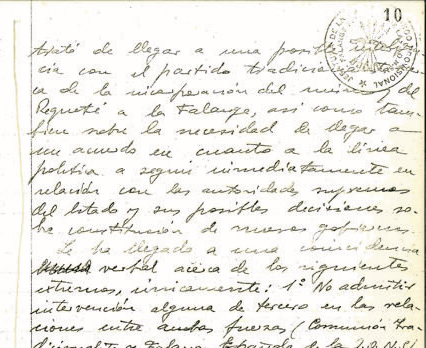 10
trató de llegar a una posible
cia con el partido
ca de la incorporación del del
Requeté a la Falange, así como tam-
bien sobre la necesidad de llegar a
un acuerdo en cuanto a la linea
politica a seguir inmediatamente en
relación con las autoridades supremas
del Estado y sus posibles decisiones so-
bre constitución de nuevos gobiernos.
Se ha llegado a una coincidencia
verbal acerca de los siguientes
extremos, únicamente: 1º No admitir
intervención alguna de tercero en las rela-
ciones entre ambas fuerzas (Comunión Tra-
dicionalista y Falange Española de las J.O.N.S)